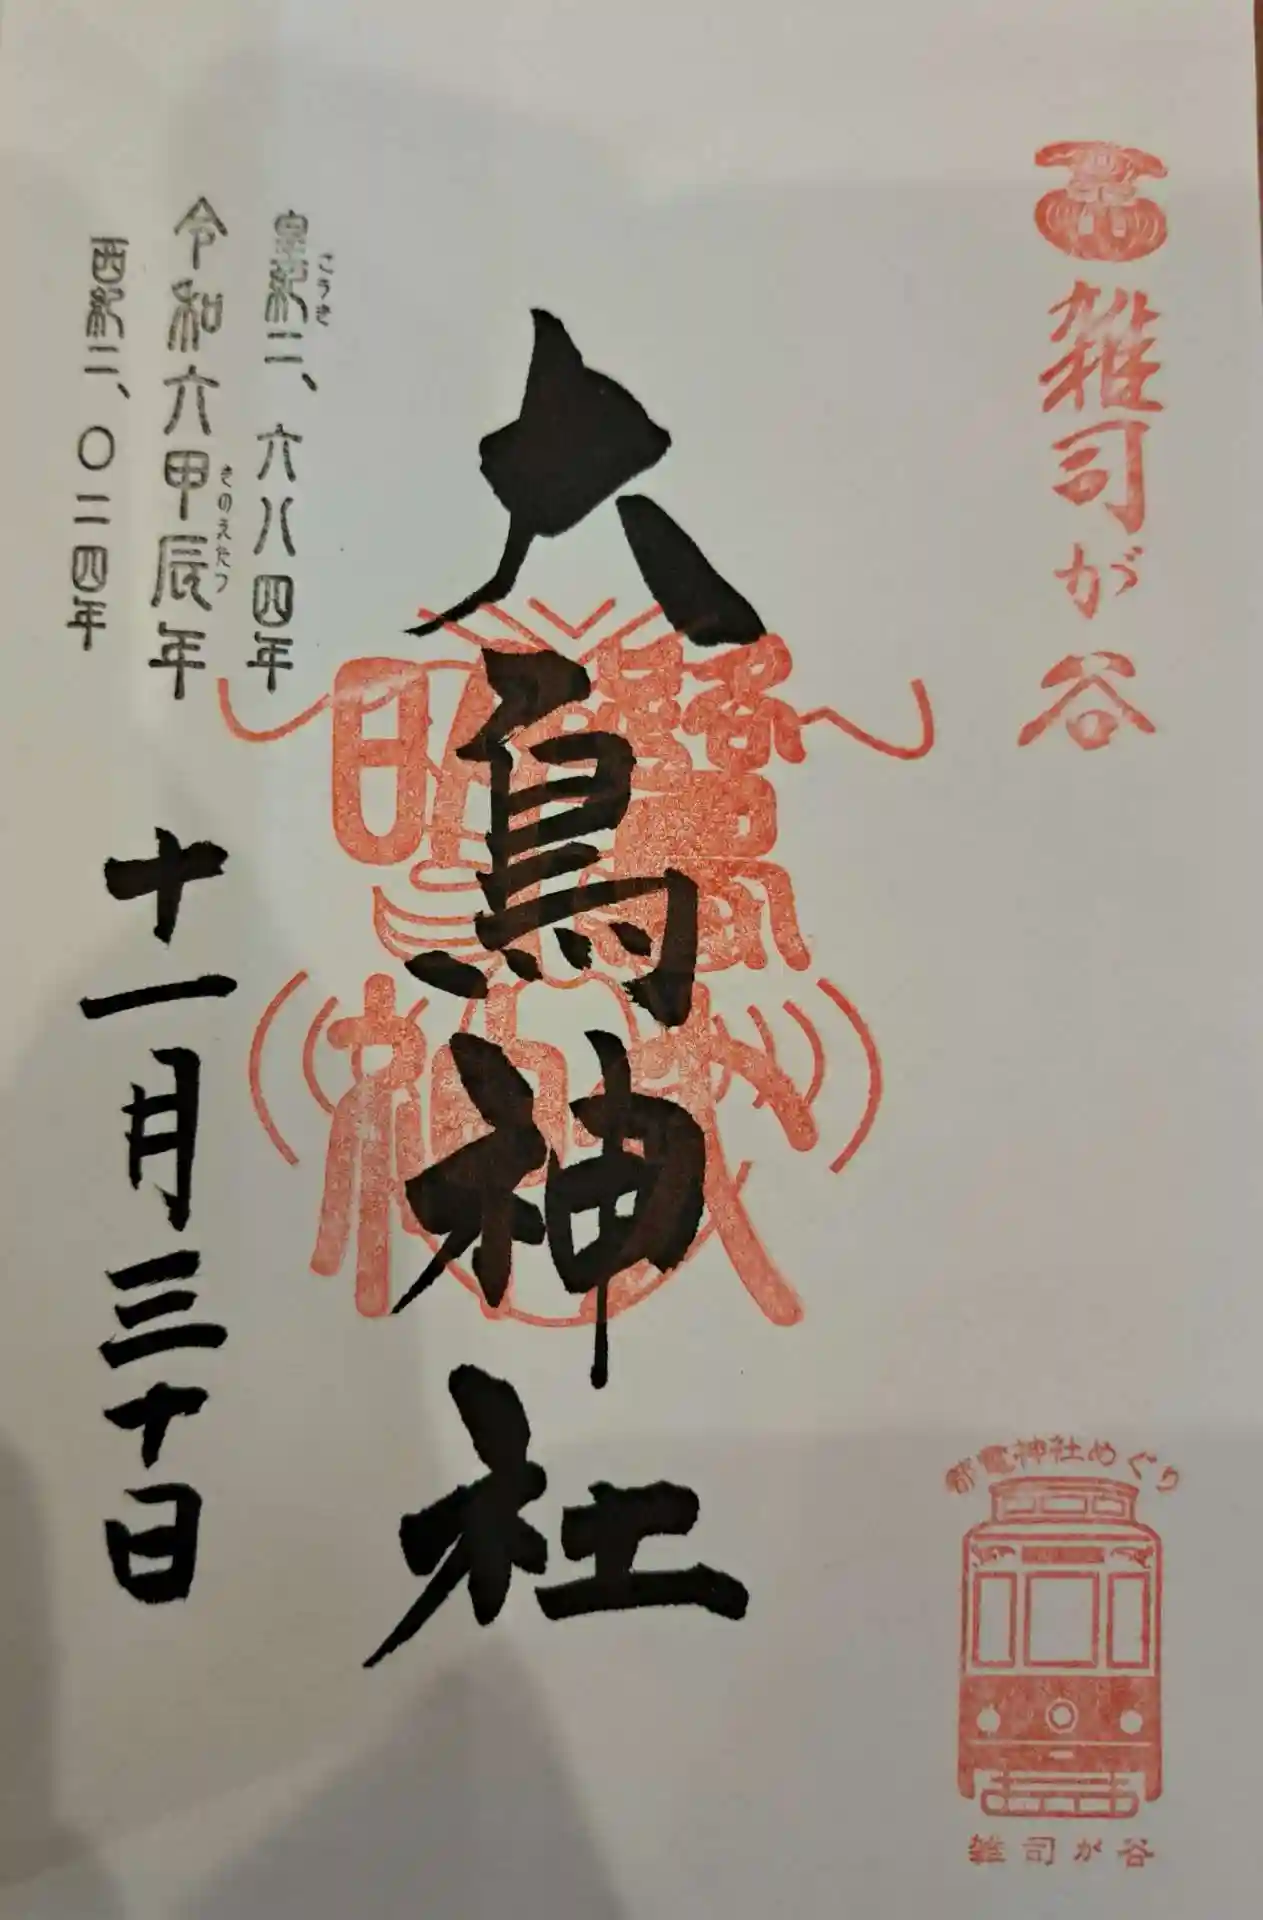 雑司が谷
大鳥神社
皇紀二、六八四年
こうき
令和六甲辰年
きのえたつ
西紀二、〇二四年
十一月三十日
都電神社めぐり
雑司が谷